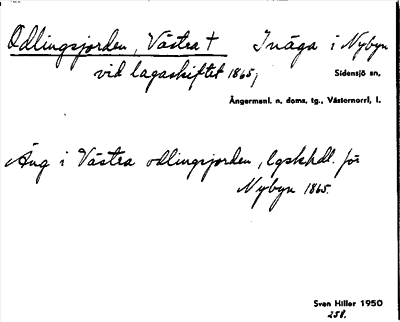 Odlingsjorden, Västra † Inäga i Nybyn
vid lagaskiftet 1865;
Sidensjö sn,
Ångermanl. n. doms, tg., Västernorrl, l.
Äng i Västra odlingsjorden, lgskhdl. för
Nybyn 1865.
Sven Hiller 1950
258.